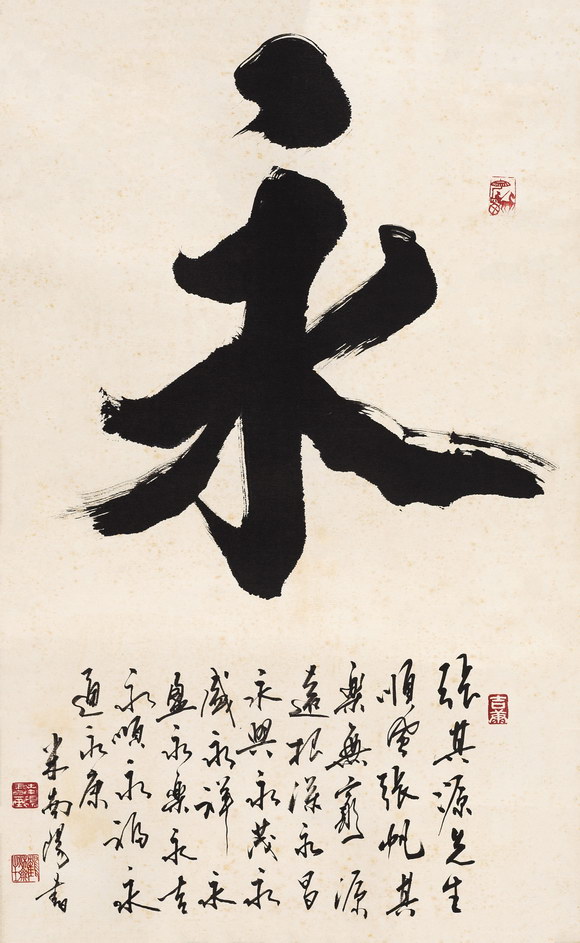 永
張其源先生
順風張帆其
樂無窮源
遠根深永昌
永興永茂永
盛永祥永
盈永樂永吉
永順永福永
通永康
米南陽書
吉康